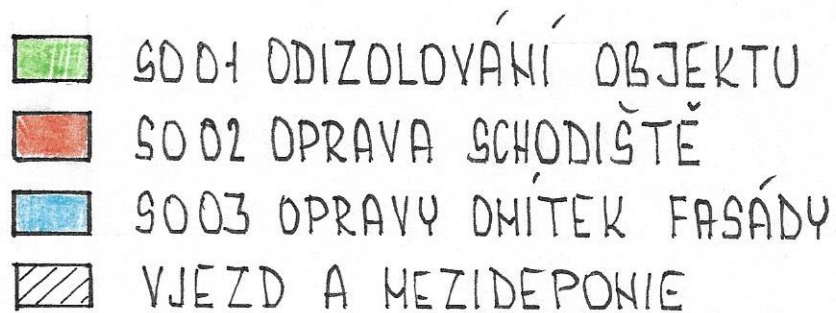 SO01 ODIZOLOVÁNÍ OBJEKTU
SO02 OPRAVA SCHODIŠTĚ
SO03 OPRAVY OMÍTEK FASÁDY
VJEZD A MEZIDEPONIE